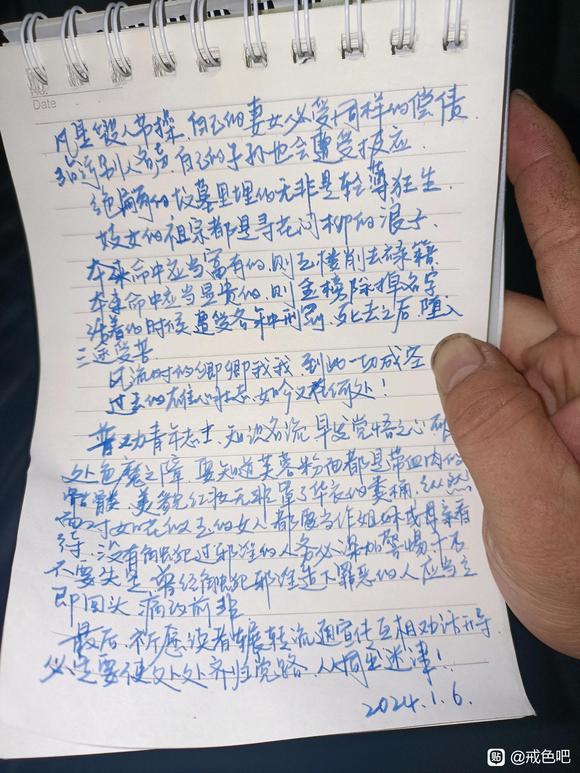 No.
Date
凡是毁人节操,自己的妻女必受同样的偿债
玷污别人名声,自己的子孙也会遭受报应.
绝嗣的坟墓里埋的无非是轻薄狂生.
妓女的祖宗都是寻花问柳的浪子.
本来命中应当富有的,则玉楼削去禄籍
本来命中应当显贵的,则金榜除掉名字.
活着的时候遭受各种刑罚,死去之后,堕入
三途受苦.
风流时的卿卿我我 到此一切成空
过去的雄心壮志,如今又在何处!
普劝青年志士,知识名流 早发觉悟之心 破
处色魔之障.要知道芙蓉粉面都是带血肉的
骷髅,美貌红妆无非是 华衣的粪桶,纵然
面对如花似玉的女人 都要当作姐妹或母亲看
待.没有触犯过邪淫的人务必深加警惕 千万
不要失足 曾经触犯邪淫造下罪恶的人应当立
即回头 痛改前非
最后,祈愿读者辗转流通宣传 互相劝 导
必定要使处处齐归觉路,人人同 迷津!
2024.1.6.
贴 @戒色吧